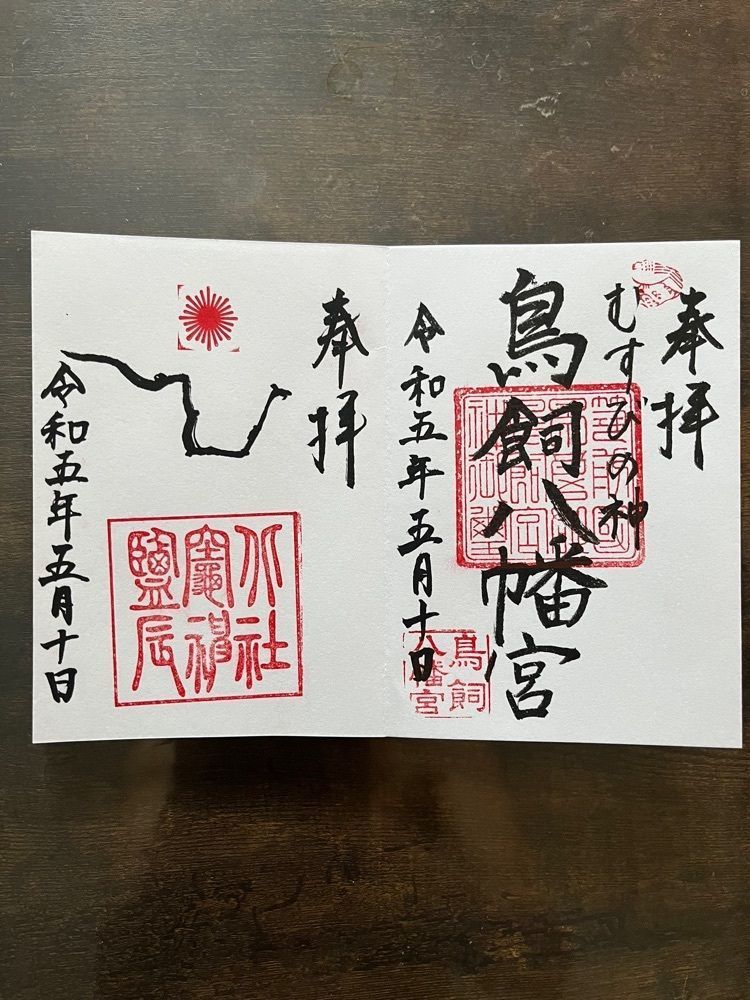 奉拝
むすびの神
鳥飼八幡宮
令和五年五月十日
鳥飼
八幡宮
奉拝
令和五年五月十日